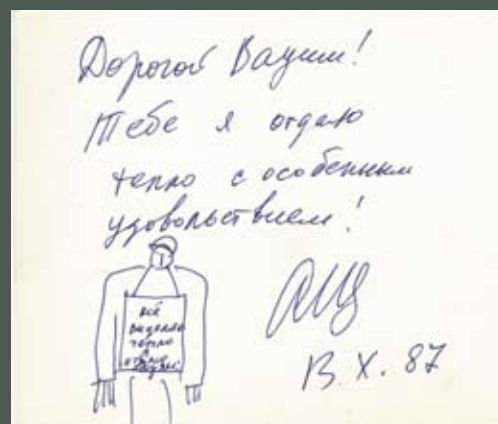 Дорогой Вадим!
Тебе я отдаю
тепло с особенным
удовольствием!
всё
тепло
13. X. 87